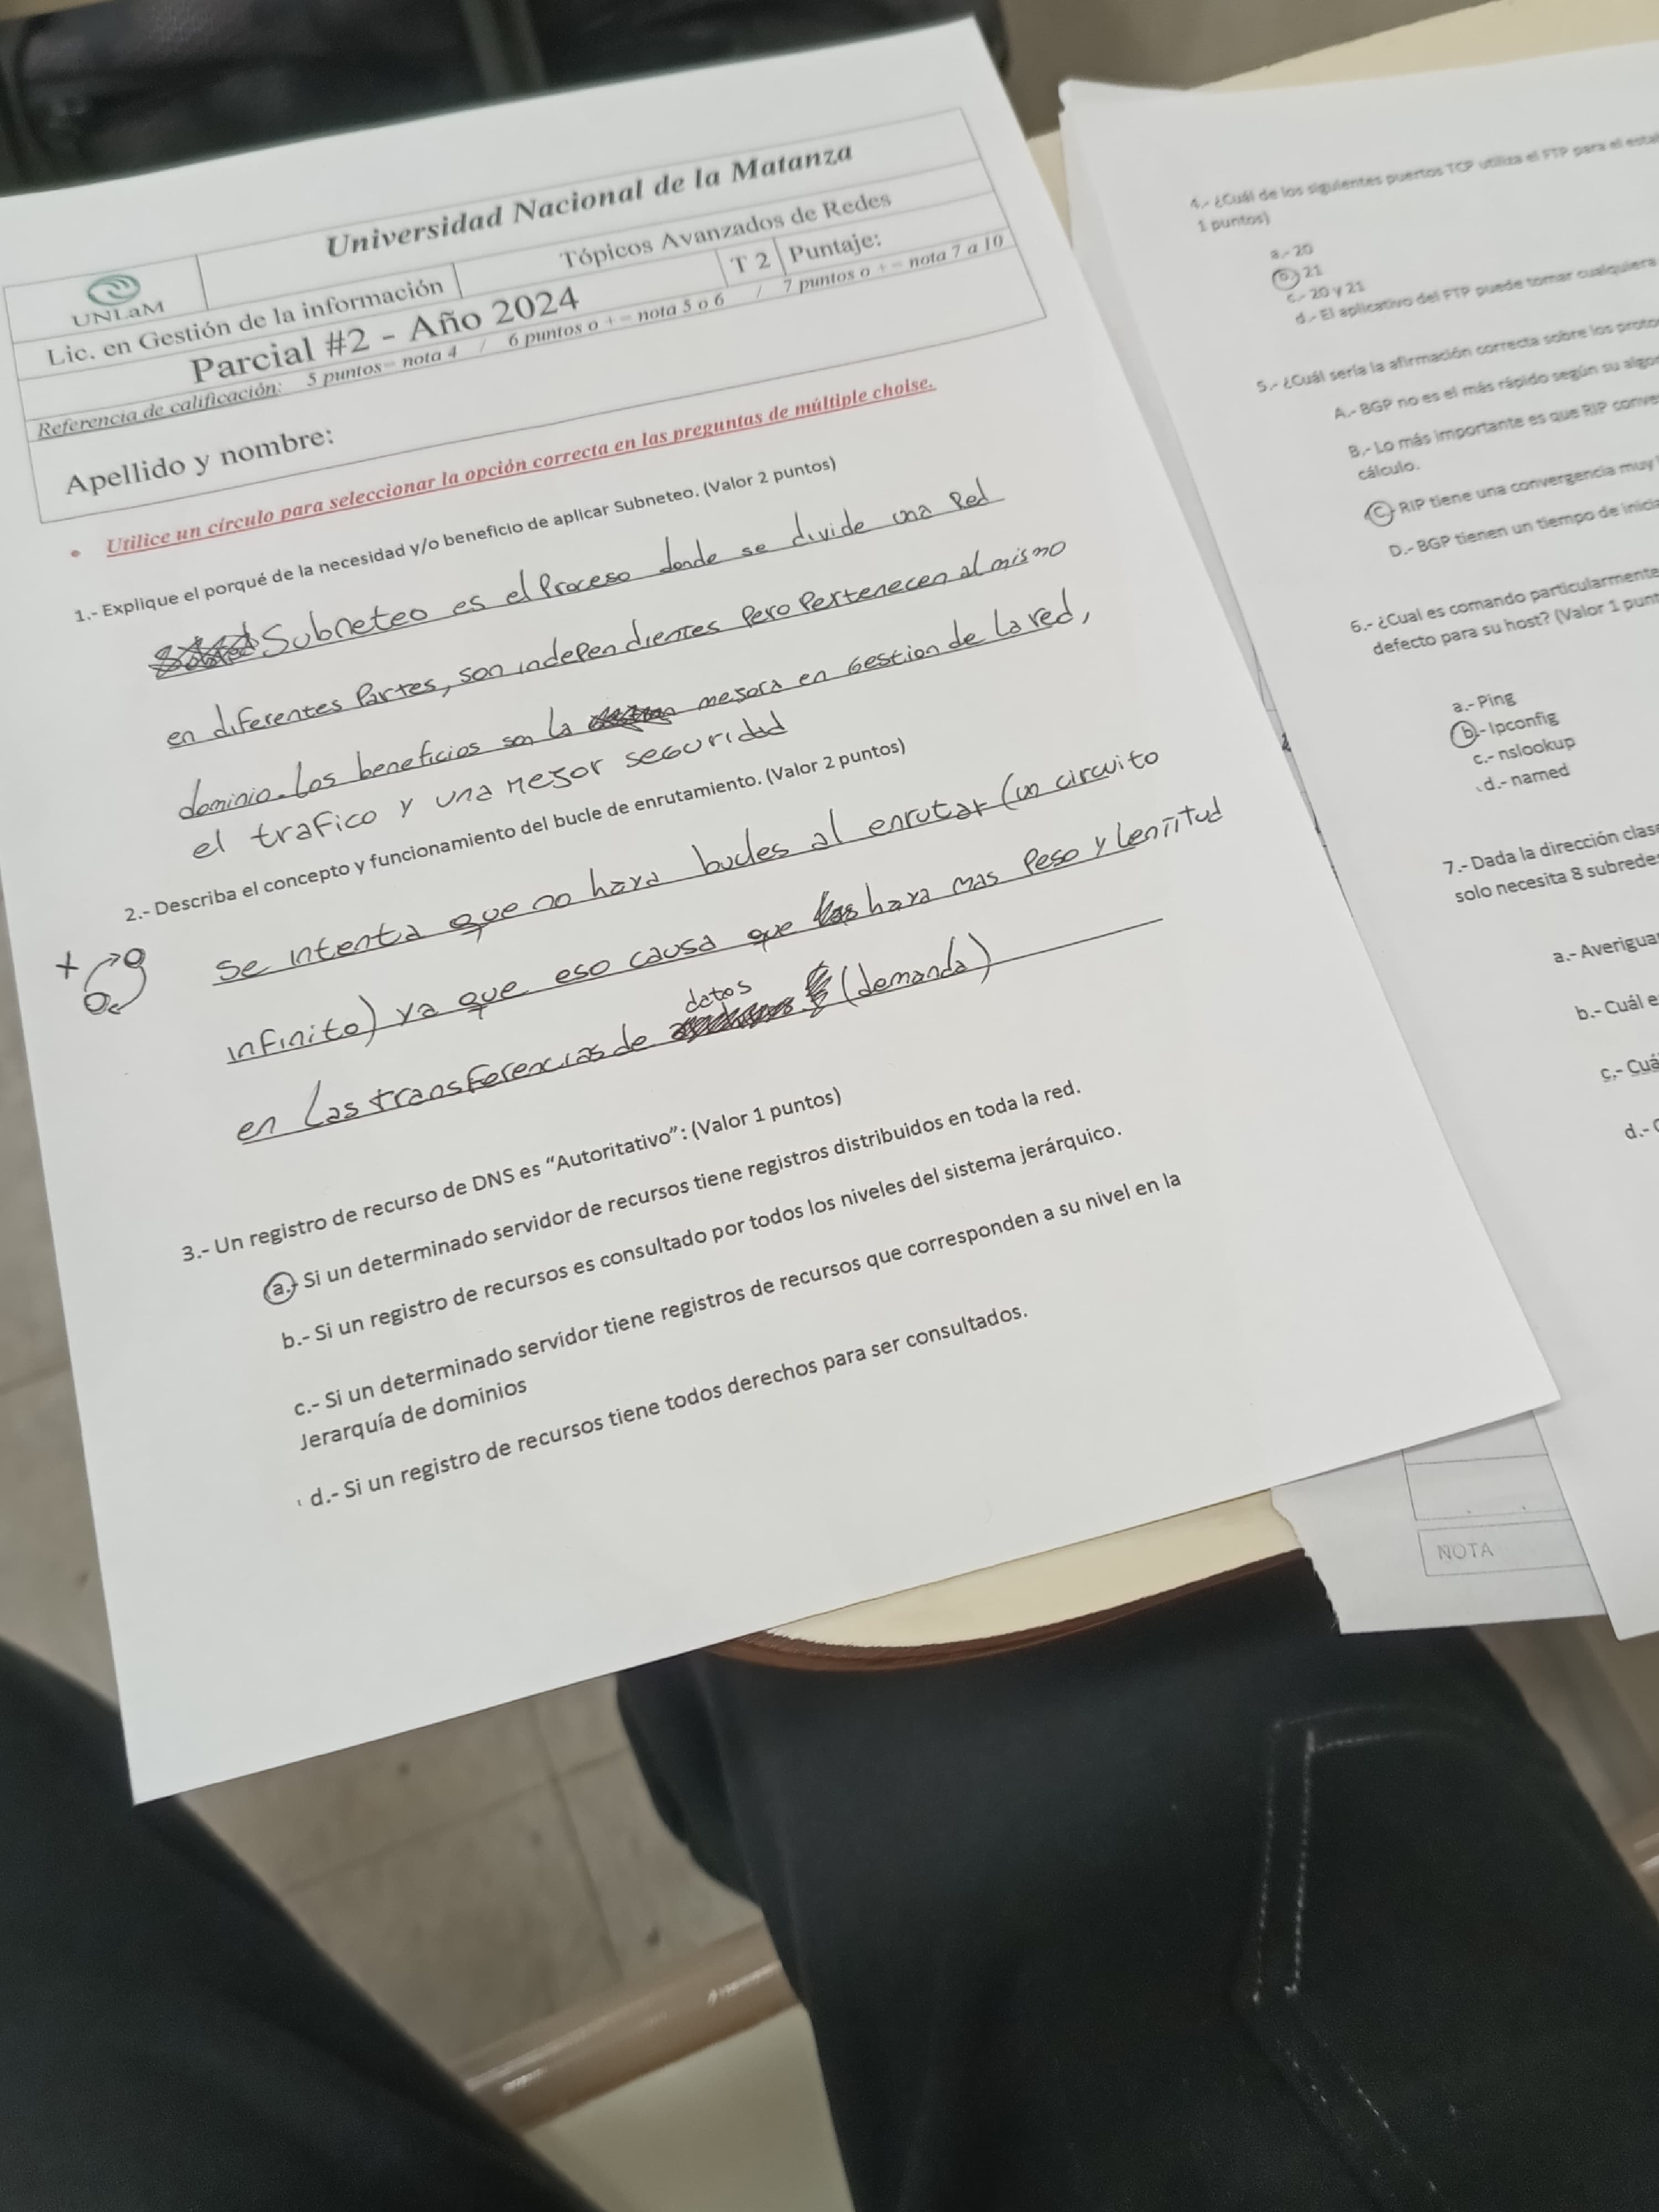 Universidad Nacional de la Matanza
UNLaM
Tópicos Avanzados de Redes
Lic. en Gestión de la información
T 2
Puntaje:
Parcial #2 - Año 2024
Referencia de calificación: 5 puntos= nota 4 / 6 puntos o += nota 5 o 6 / 7 puntos o += nota 7 a 10
Apellido y nombre:
• Utilice un círculo para seleccionar la opción correcta en las preguntas de múltiple choise.
1.- Explique el porqué de la necesidad y/o beneficio de aplicar Subneteo. (Valor 2 puntos)
Subneteo es el Proceso donde se divide una Red
en diferentes Partes, son independientes Pero Pertenecen al mismo
dominio. Los beneficios son la mejora en Gestion de La red,
el trafico y una mejor seguridad
2.- Describa el concepto y funcionamiento del bucle de enrutamiento. (Valor 2 puntos)
Se intenta que no haya bucles al enrutar (un circuito
infinito) ya que eso causa que haya mas Peso y Lentitud
en Las transferencias de datos (demanda)
3.- Un registro de recurso de DNS es “Autoritativo”: (Valor 1 puntos)
a.- Si un determinado servidor de recursos tiene registros distribuidos en toda la red.
b.- Si un registro de recursos es consultado por todos los niveles del sistema jerárquico.
c.- Si un determinado servidor tiene registros de recursos que corresponden a su nivel en la
Jerarquía de dominios
d.- Si un registro de recursos tiene todos derechos para ser consultados.
4.- ¿Cuál de los siguientes puertos TCP utiliza el FTP para el
1 puntos)
a.- 20
b.- 21
c.- 20 y 21
d.- El aplicativo del FTP puede tomar cualquiera
5.- ¿Cuál sería la afirmación correcta sobre los
A.- BGP no es el más rápido según su
B.- Lo más importante es que RIP
cálculo.
C.- RIP tiene una convergencia muy
D.- BGP tienen un tiempo de
6.- ¿Cual es comando particularmente
defecto para su host? (Valor 1
a.- Ping
b.- Ipconfig
c.- nslookup
d.- named
7.- Dada la dirección
solo necesita 8
a.-
b.- Cuál
c.-
d.-
NOTA